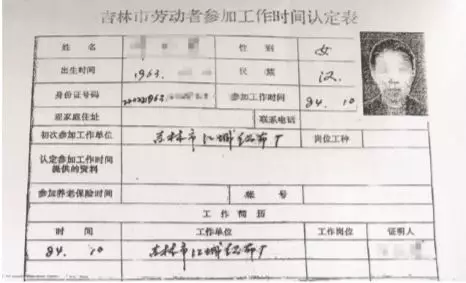 吉林市劳动者参加工作时间认定表
姓 名 性 别 女
出生时间 1963. 民 族 汉.
身份证号码 参加工作时间 84. 10
现家庭住址 联系电话
初次参加工作单位 吉林市江城纸布厂 岗位工种
认定参加工作时间
提供的资料
参加养老保险时间 账 号
工作简历
时 间 工作单位 工作岗位 证明人
84. 10 吉林市江城纸布厂